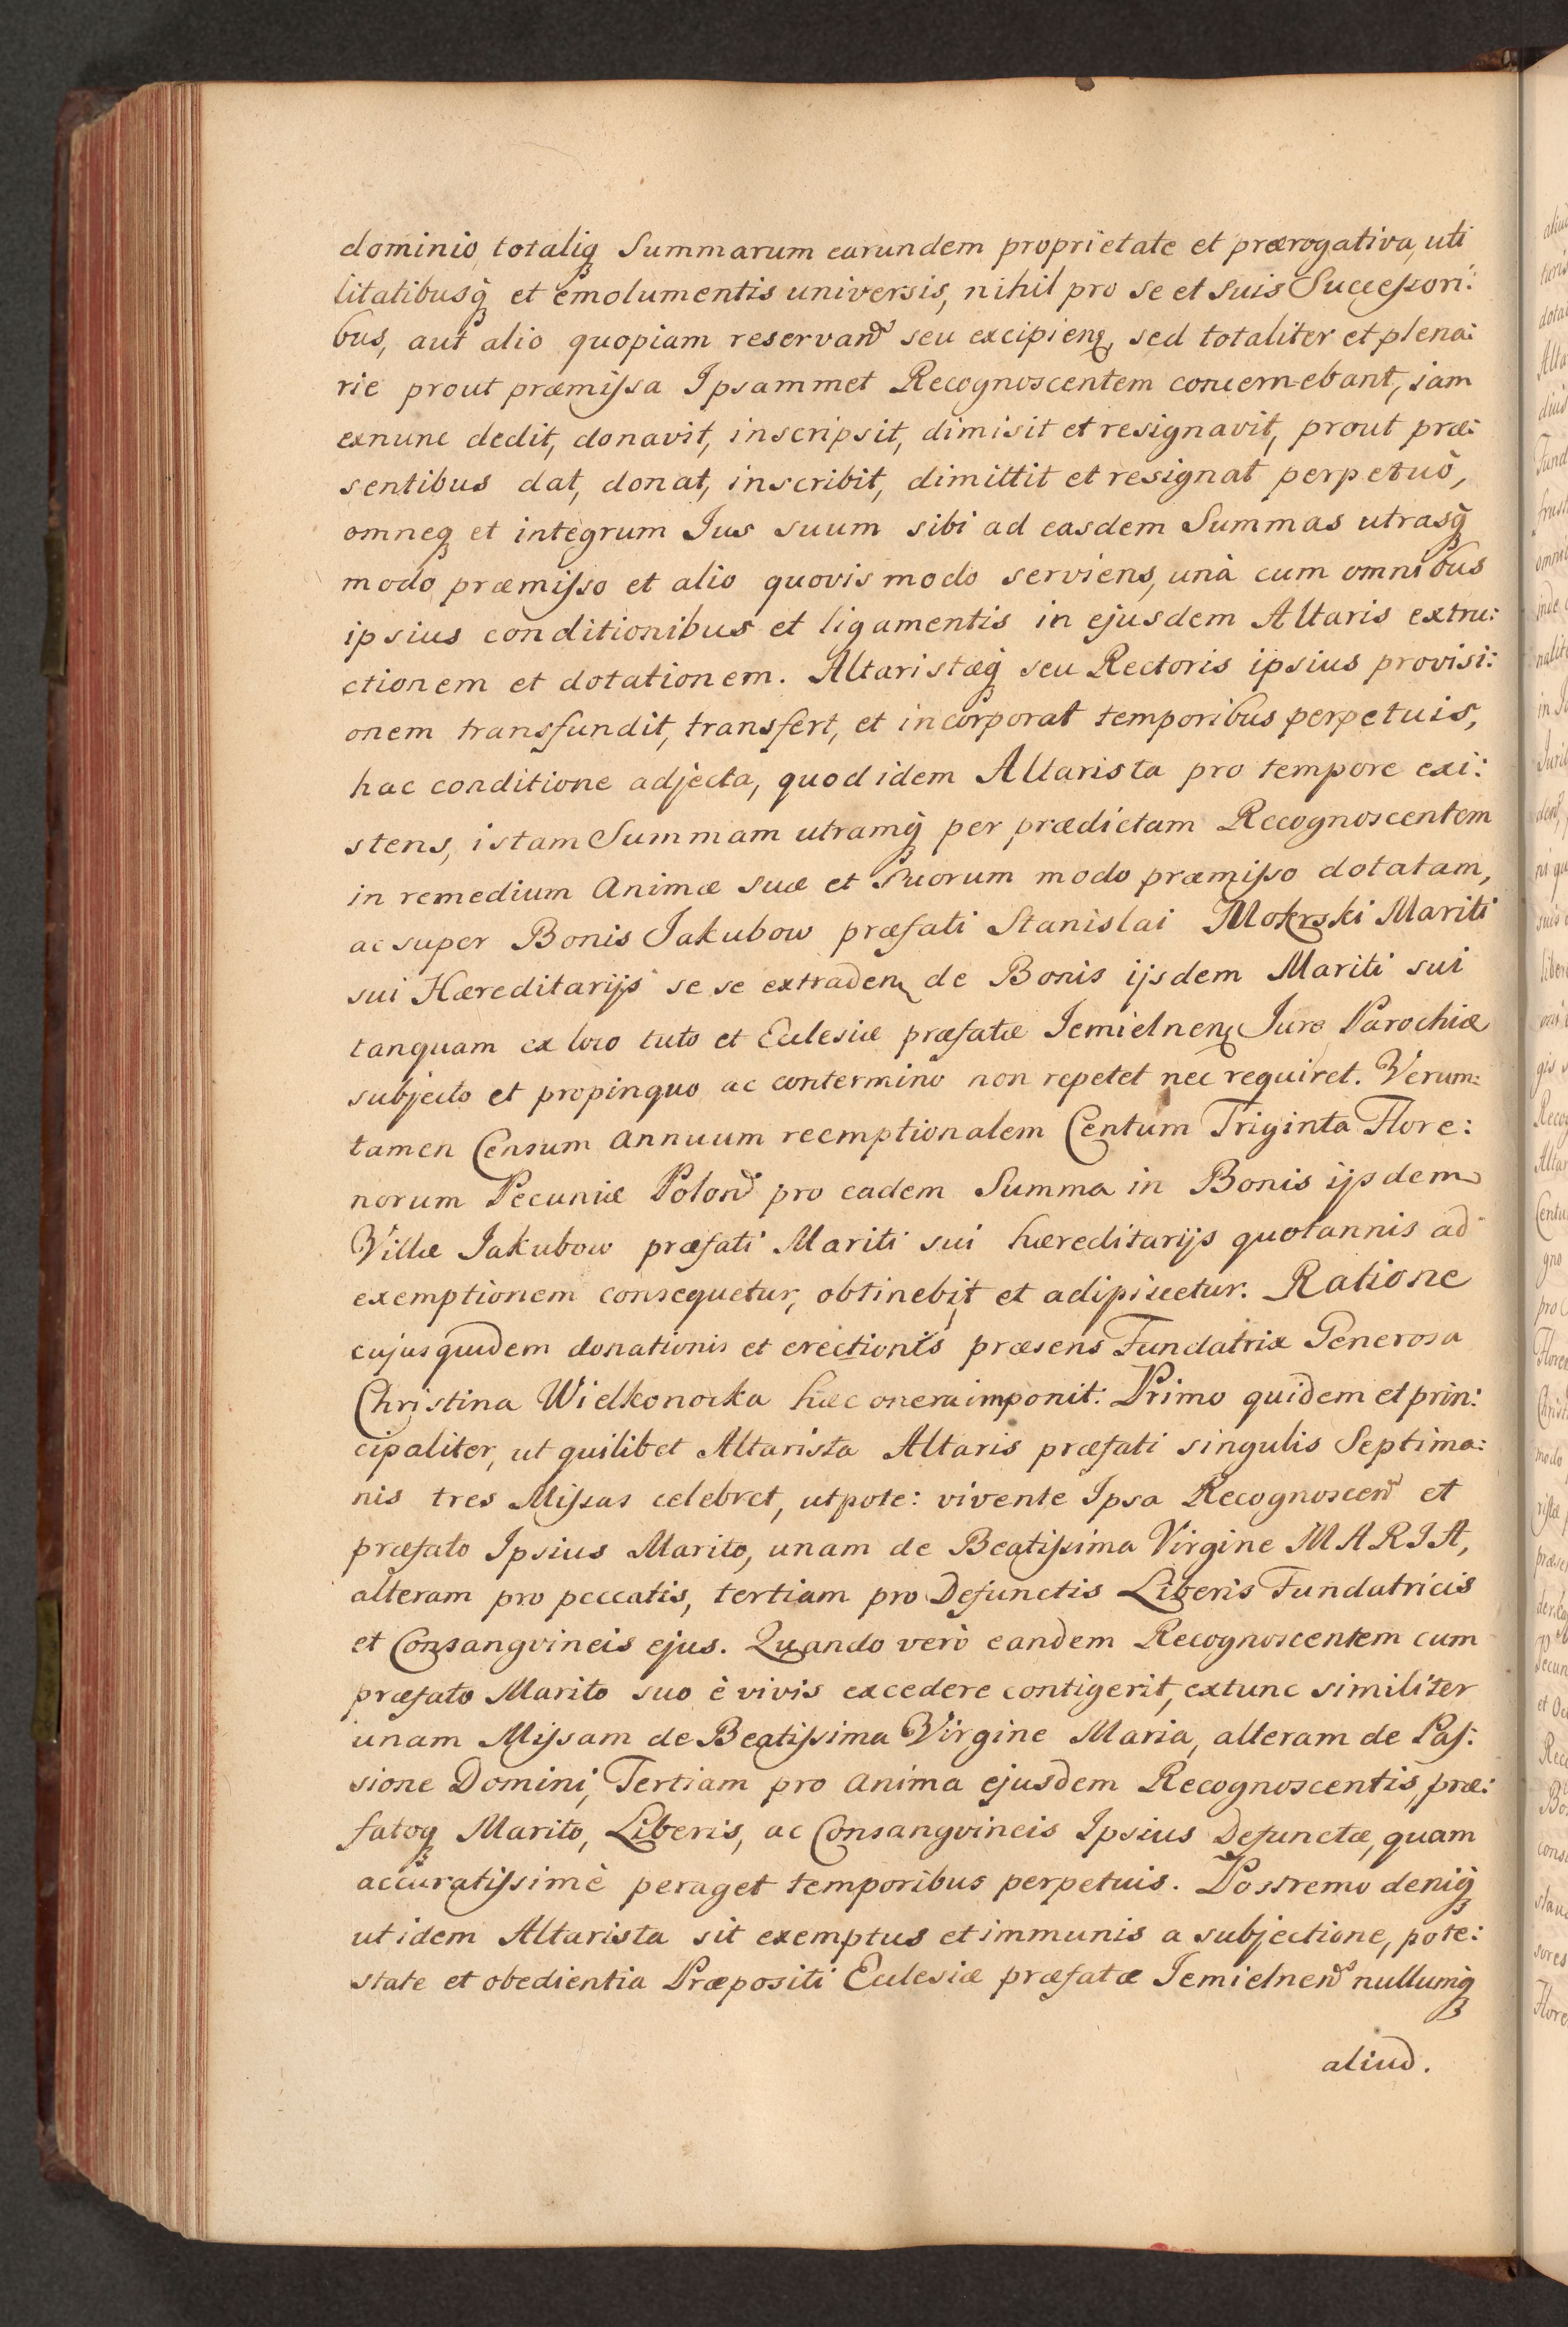 dominio, totaliq; Summarum earundem proprietate et prærogativa, uti
litatibusq; et emolumentis universis, nihil pro se et suis Successori:
bus, aut alio quopiam reservan̄ seu excipien; sed totaliter et plena:
rie prout præmissa Ipsammet Recognoscentem concernebant, jam
exnunc dedit, donavit, inscripsit, dimisit et resignavit, prout præ:
sentibus dat, donat, inscribit, dimittit et resignat perpetuò,
omneq; et integrum Jus suum sibi ad easdem Summas utrasq;
modo præmisso et alio quovis modo serviens, unà cum omnibus
ipsius conditionibus et ligamentis in ejusdem Altaris extru:
ctionem et dotationem. Altaristæq; seu Rectoris ipsius provisi:
onem transfundit, transfert, et incorporat temporibus perpetuis,
hac conditione adjecta, quod idem Altarista pro tempore exi:
stens, istam Summam utramq; per prædictam Recognoscentem
in remedium Animæ suæ et Suorum modo præmisso dotatam,
ac super Bonis Jakubow præfati Stanislai Mokrski Mariti
sui Hæreditarijs se se extraden; de Bonis ijsdem Mariti sui
tanquam ex loco tuto et Eclesiæ præfatæ Jemielnen; Jure Parochiæ
subjecto et propinquo ac contermino non repetet nec requiret. Verum:
tamen Censum annuum reemptionalem Centum Triginta Flore:
norum Pecuniæ Polon̄ pro eadem Summa in Bonis ijsdem
Villæ Jakubow præfati Mariti sui hæreditarijs quotannis ad
exemptionem consequetur, obtinebit et adipiscetur. Ratione
cujusquidem donationis et erectionis præsens Fundatrix Generosa
Christina Wielkonocka hæc onera imponit. Primo quidem et prin:
cipaliter, ut quilibet Altarista Altaris præfati singulis Septima:
nis tres Missas celebret, utpote: vivente Ipsa Recognoscen̄ et
præfato Ipsius Marito, unam de Beatissima Virgine MARIA,
alteram pro peccatis, tertiam pro Defunctis Liberis Fundatricis
et Consangvineis ejus. Quando verò eandem Recognoscentem cum
præfato Marito suo è vivis excedere contigerit, extunc similiter
unam Missam de Beatissima Virgine Maria, alteram de Pas:
sione Domini, Tertiam pro anima ejusdem Recognoscentis, præ:
fatoq; Marito, Liberis, ac Consangvineis Ipsius Defunctæ, quam
accuratissimè peraget temporibus perpetuis. Postremo deniq;
ut idem Altarista sit exemptus et immunis a subjectione, pote:
state et obedientia Præpositi Eclesiæ præfatæ Jemielnen̄ nullumq;
aliud.